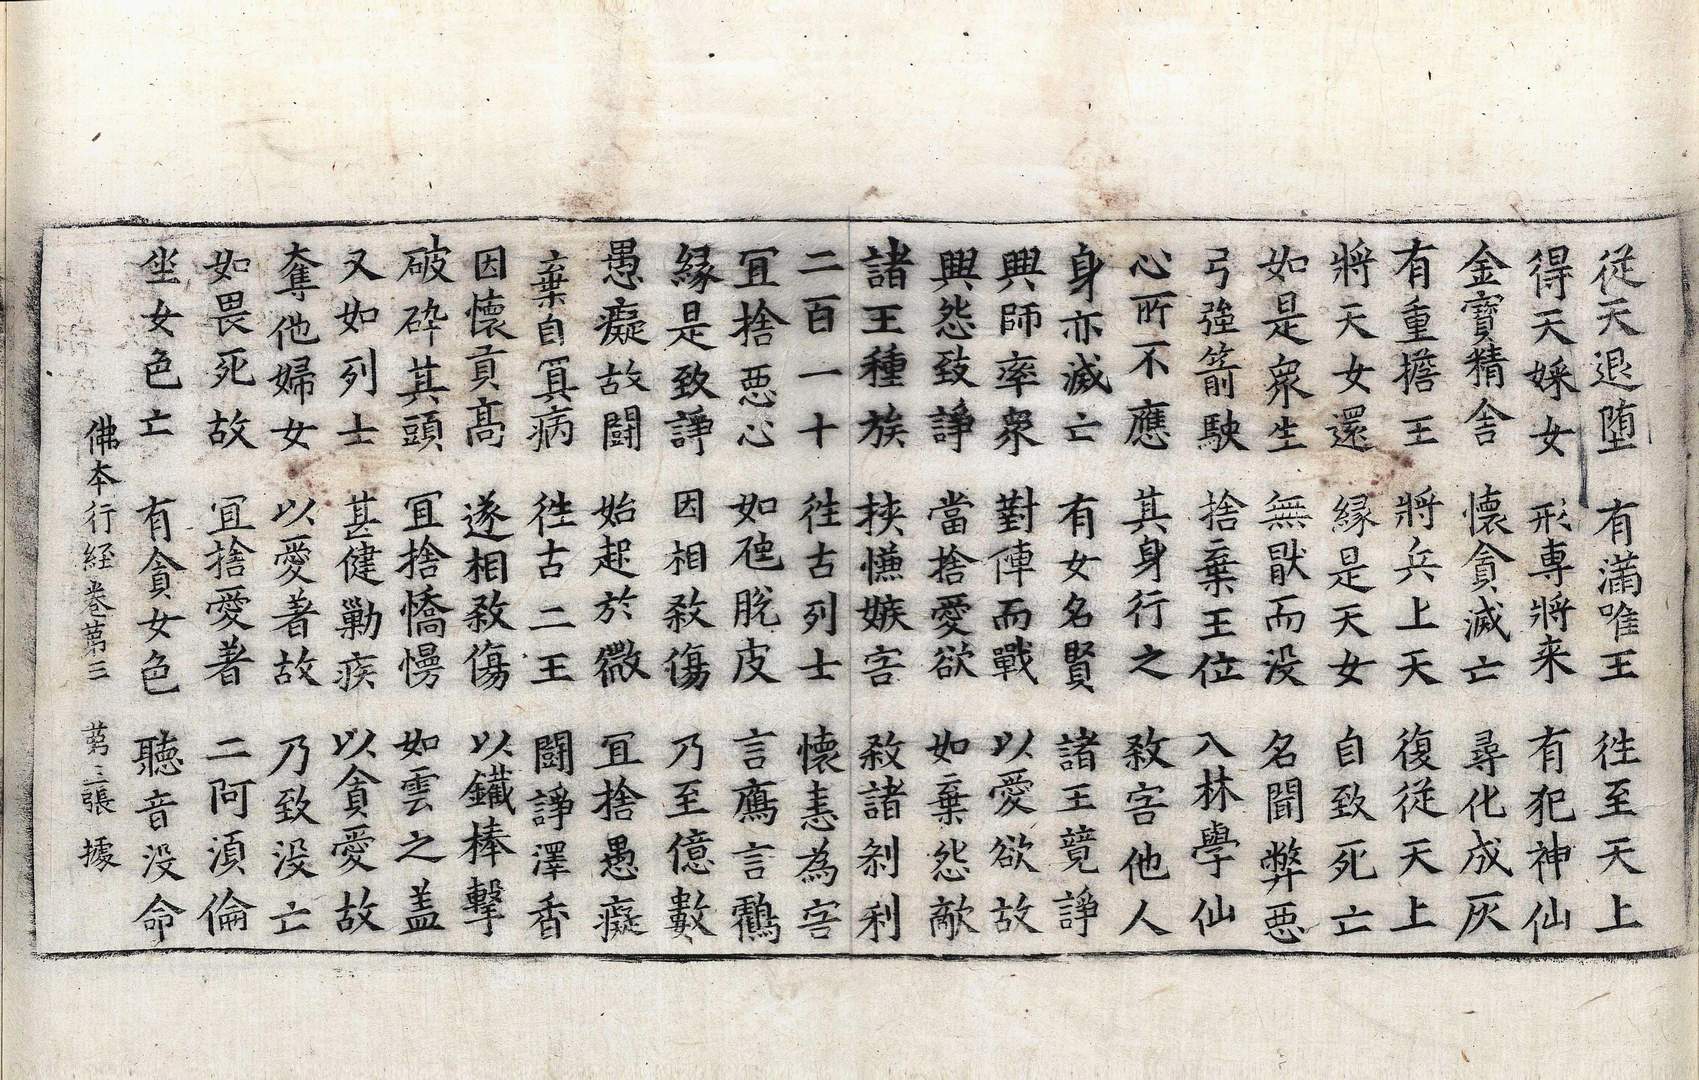 從天退墮 有滿唯王 往至天上
得天婇女 形専將来 有犯神仙
金寶精舎 懷貪滅亡 尋化成灰
有重擔王 將兵上天 復從天上
將天女還 縁是天女 自致死亡
如是衆生 無猒而没 名聞弊惡
弓強箭駛 捨棄王位 入林學仙
心所不應 其身行之 敎害他人
身亦滅亡 有女名賢 諸王競諍
興師率衆 對陣而戰 以愛欲故
興怨致諍 當捨愛欲 如棄怨敵
諸王種族 挾慊嫉害 煞諸刹利
二百一十 往古列士 懷恚為害
冝捨惡心 如虵脫皮 言鴈言鶴
縁是致諍 因相煞傷 乃至億數
愚癡故鬪 始起於微 冝捨愚癡
棄自冥病 往古二王 鬪諍澤香
因懷貢高 遂相煞傷 以鐵棒擊
破碎其頭 冝捨憍慢 如雲之盖
又如列士 甚健勦疾 以貪愛故
奪他婦女 以愛著故 乃致没亡
如畏死故 冝捨愛著 二阿湏倫
坐女色亡 有貪女色 聽音没命
佛本行経卷苐三 苐三張 據